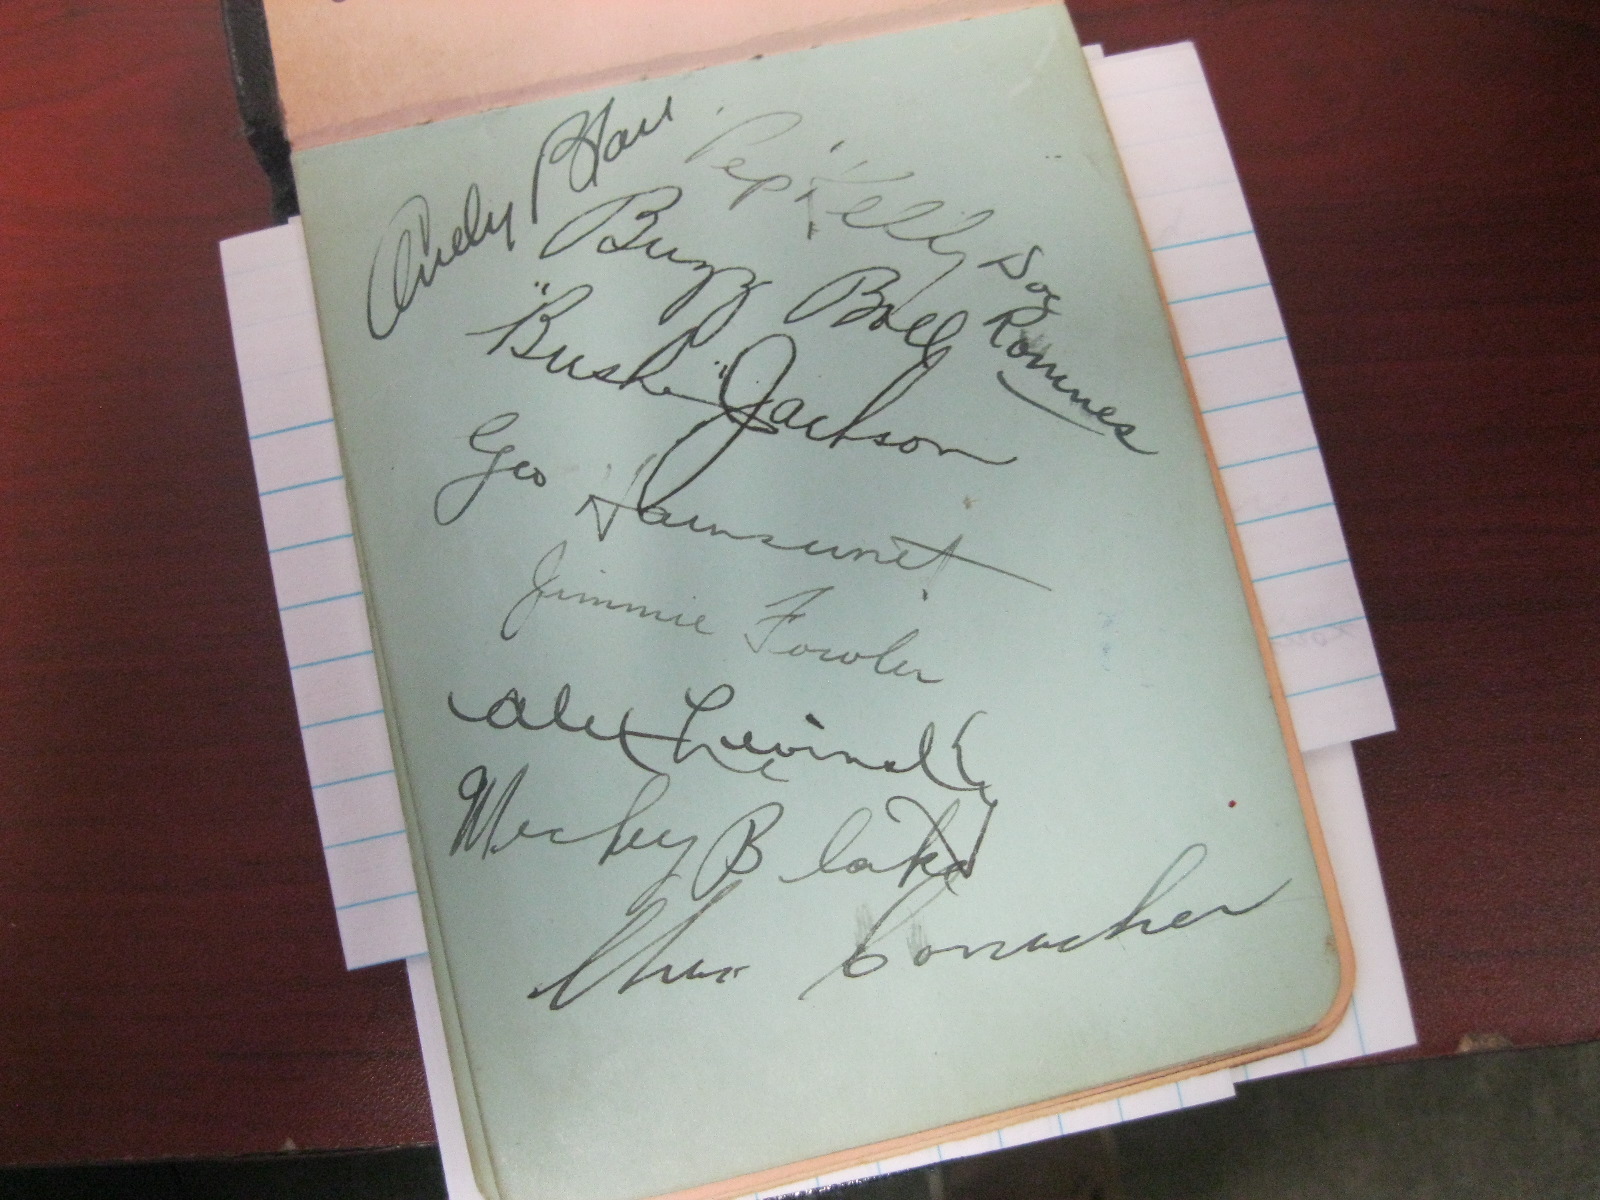 Andy Blair
"Pep" Kelly
Buzz Boll
Doc
Romnes
"Busher" Jackson
Geo Hainsworth
Jimmie Fowler
Alex Levinsky
Mickey Blake
Chas Conacher